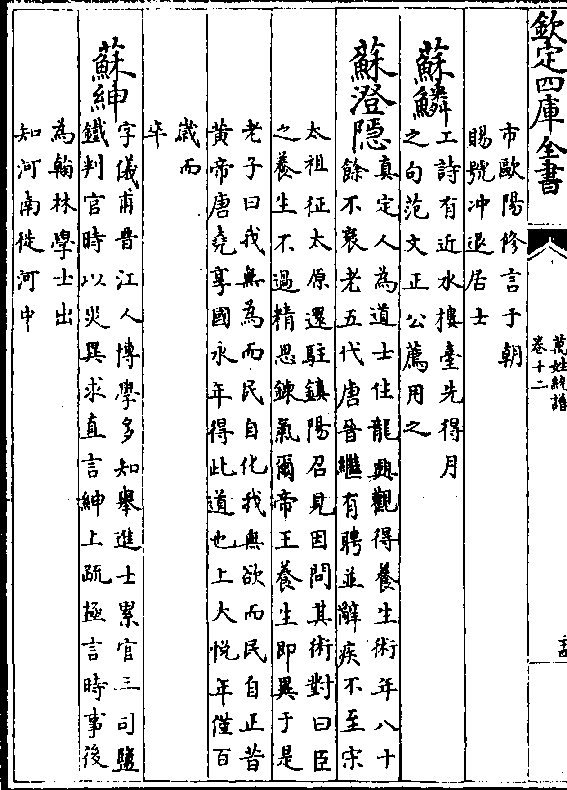 欽定四庫全書
萬姓統譜
卷十二
市歐陽修言于朝
賜號沖退居士
蘇鱗
工詩有近水樓臺先得月
之句范文正公薦用之
蘇澄隱
真定人為道士住龍興觀得養生術年八十
餘不衰老五代唐晉繼有聘並辭疾不至宋
太祖征太原還駐鎮陽召見因問其術對曰臣
之養生不過精思鍊氣爾帝王養生即異于是
老子曰我無為而民自化我無欲而民自正昔
黃帝唐堯享國永年得此道也上大悅年僅百
歲而
卒
蘇紳
字儀甫晉江人博學多知舉進士累官三司鹽
鐵判官時以災異求直言紳上疏極言時事後
為翰林學士出
知河南徙河中